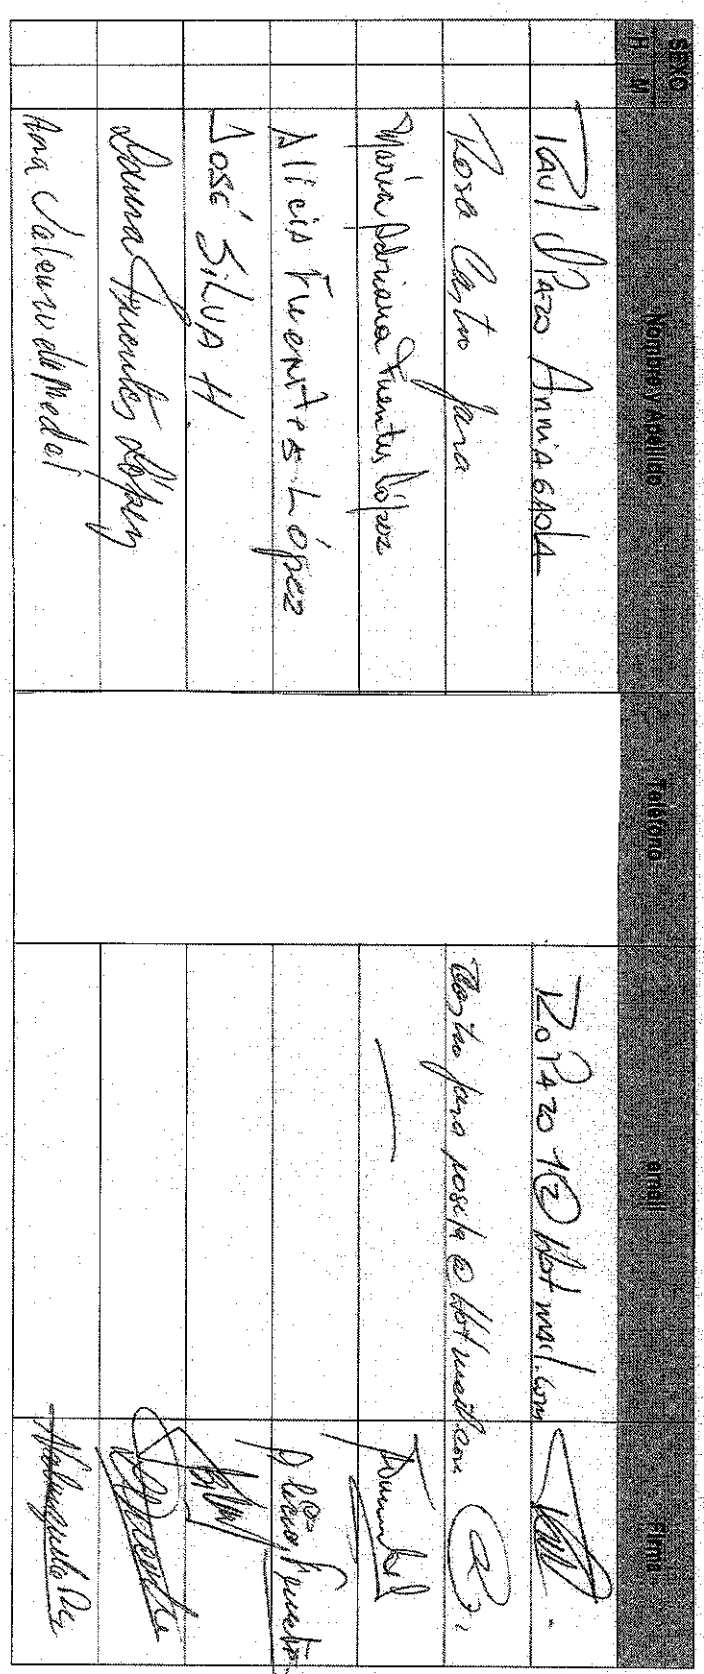 SEXO
H M Nombre y Apellido Teléfono email Firma
Raul Pazo Arriagada RoPazo1@Hotmail.com
Rosa Castro Jara Castro jara rosita @ Hotmail.com
María Adriana Fuentes López
Alicia Fuentes López Alicia Fuentes
José Silva H
Fuentes López
Ana